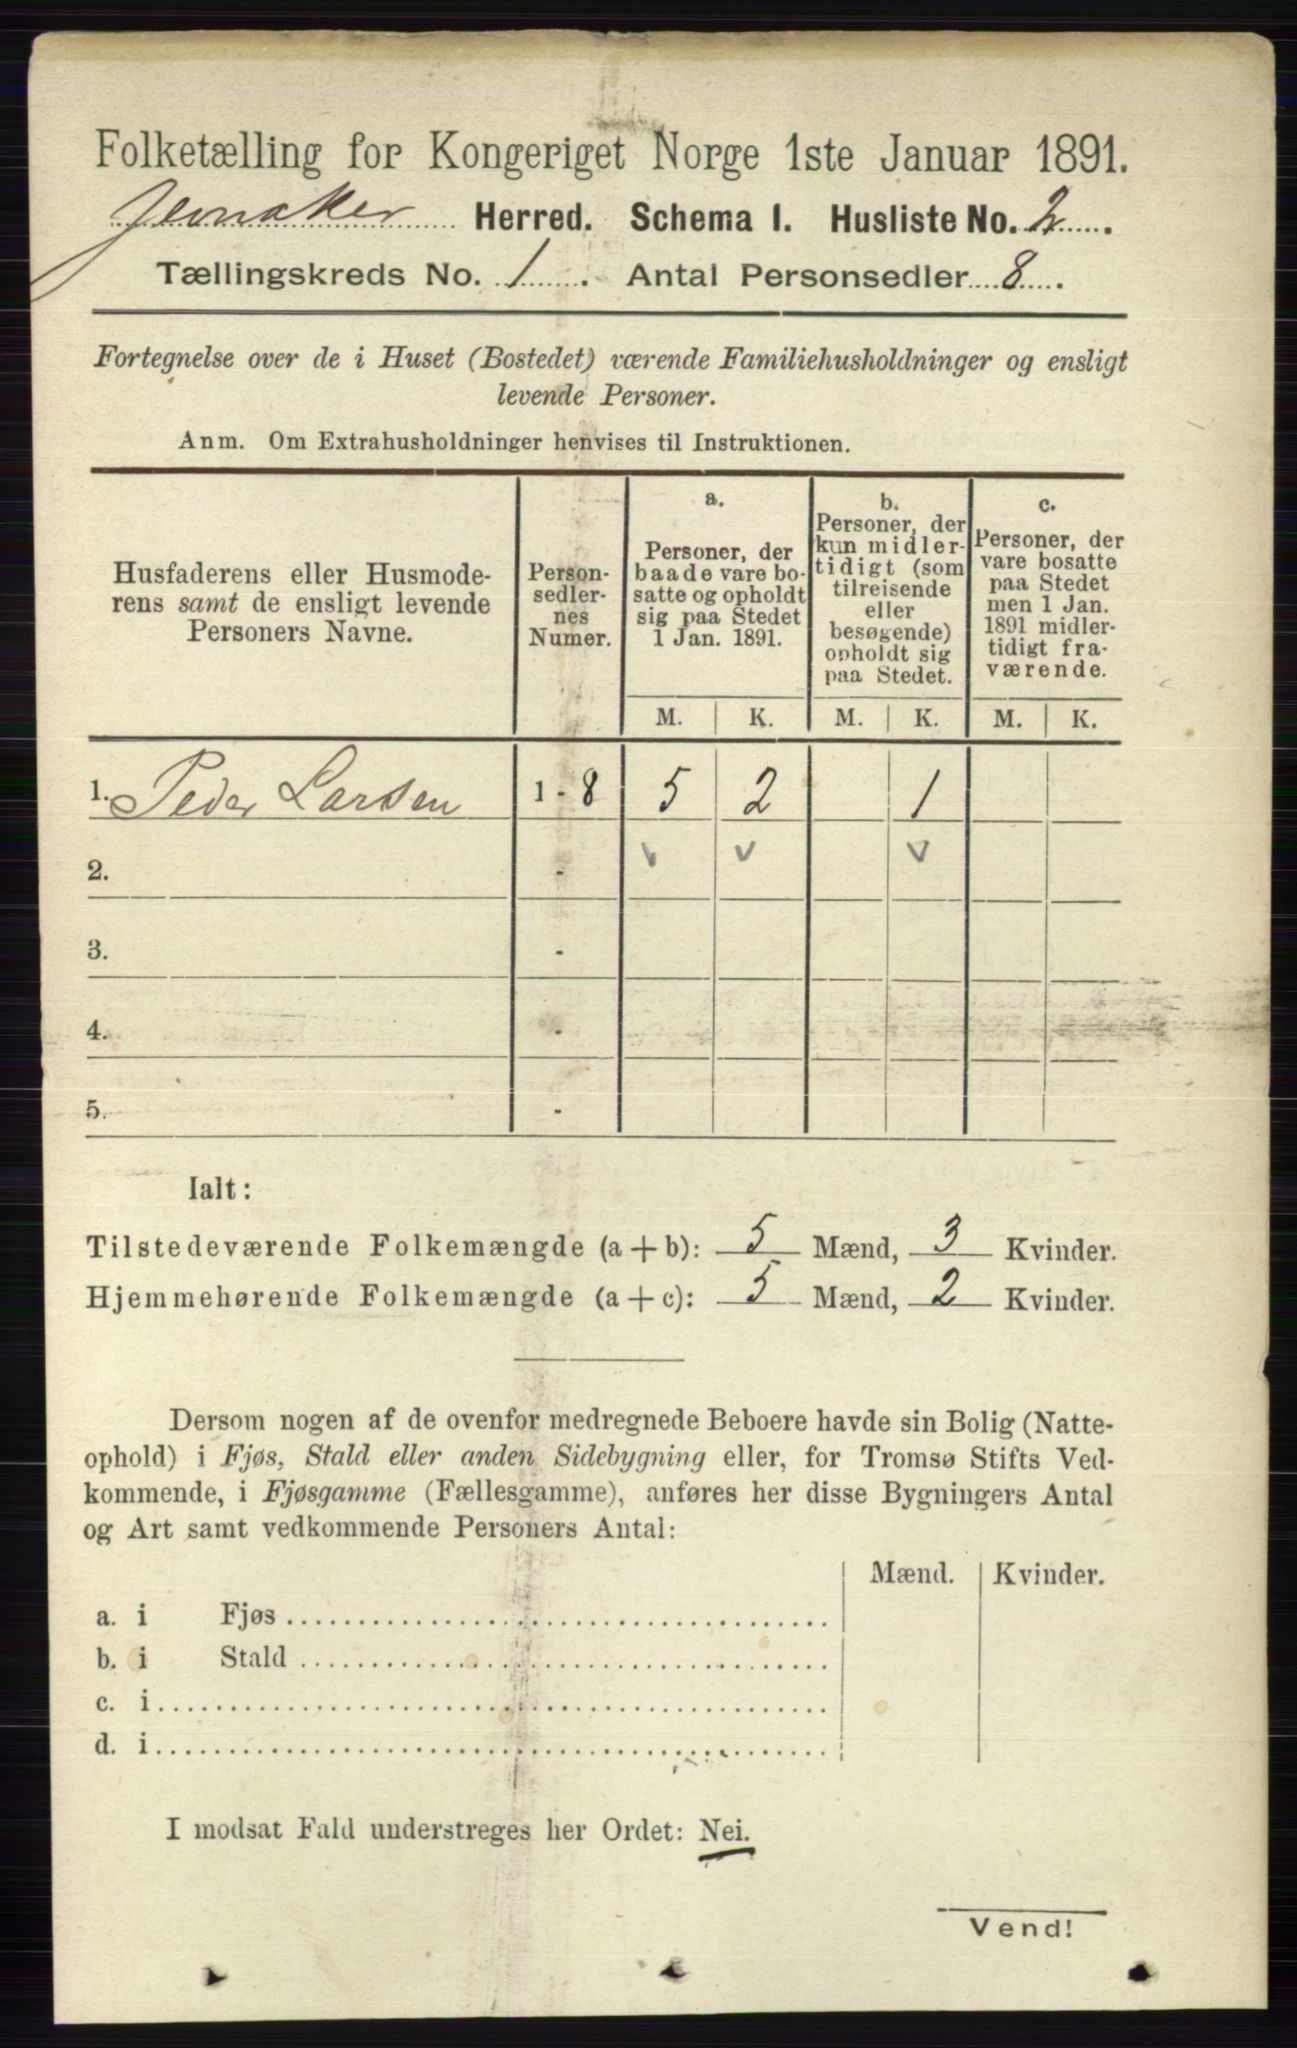 Folketælling for Kongeriget Norge 1ste Januar 1891.
Jevnaker Herred. Schema I. Husliste No. 2
Tællingskreds No. 1. Antal Personsedler 8.
Fortegnelse over de i Huset (Bostedet) værende Familiehusholdninger og ensligt
levende Personer.
Anm. Om Extrahusholdninger henvises til Instruktionen.
Husfaderens eller Husmode-
rens samt de ensligt levende
Personers Navne.
Person-
sedler-
nes
Numer.
a.
Personer, der
baade vare bo-
satte og opholdt
sig paa Stedet
1 Jan. 1891.
b.
Personer, der
kun midler-
tidigt (som
tilreisende
eller
besøgende)
opholdt sig
paa Stedet.
c.
Personer, der
vare bosatte
paa Stedet
men 1 Jan.
1891 midler-
tidigt fra-
værende.
M. K. M. K. M. K.
1. Peder Larsen 1 - 8 5 2 1
2. - v v v
3. -
4. -
5. -
Ialt:
Tilstedeværende Folkemængde (a + b): 5 Mænd, 3 Kvinder.
Hjemmehørende Folkemængde (a + c): 5 Mænd, 2 Kvinder.
Dersom nogen af de ovenfor medregnede Beboere havde sin Bolig (Natte-
ophold) i Fjøs, Stald eller anden Sidebygning eller, for Tromsø Stifts Ved-
kommende, i Fjøsgamme (Fællesgamme), anføres her disse Bygningers Antal
og Art samt vedkommende Personers Antal:
Mænd. Kvinder.
a. i Fjøs
b. i Stald
c. i
d. i
I modsat Fald understreges her Ordet: Nei.
Vend!